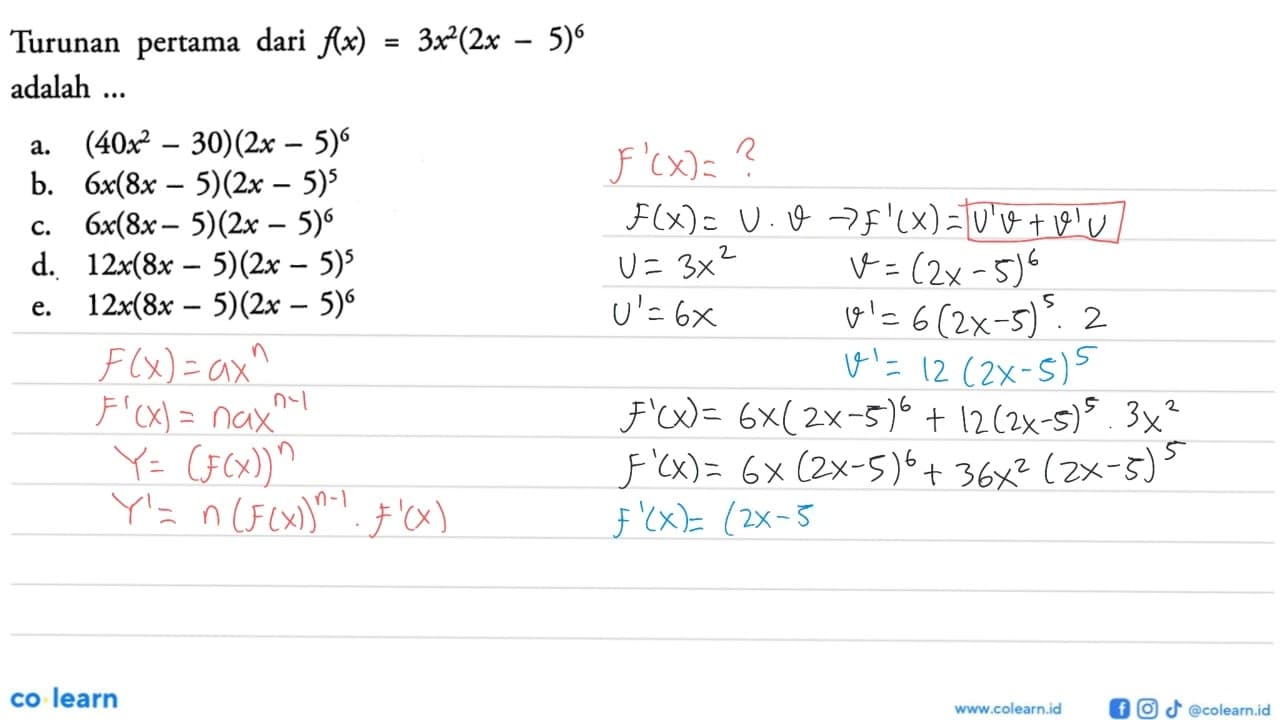 Turunan pertama dari f(x) = 3x²(2x − 5)⁶
adalah ...
a. (40x² − 30)(2x − 5)⁶
b. 6x(8x − 5)(2x − 5)⁵
c. 6x(8x − 5)(2x − 5)⁶
d. 12x(8x − 5)(2x − 5)⁵
e. 12x(8x − 5)(2x − 5)⁶
F(x) = axⁿ
F'(x) = naxⁿ⁻¹
Y = (F(x))ⁿ
Y' = n(F(x))ⁿ⁻¹ . F'(x)
F'(x) = ?
F(x) = U . V → F'(x) = U'V + V'U
U = 3x² V = (2x − 5)⁶
U' = 6x V' = 6(2x−5)⁵ . 2
V' = 12 (2x−5)⁵
F'(x) = 6x(2x−5)⁶ + 12(2x−5)⁵ . 3x²
F'(x) = 6x (2x−5)⁶ + 36x² (2x−5)⁵
F'(x) = (2x−5
co learn
www.colearn.id @colearn.id